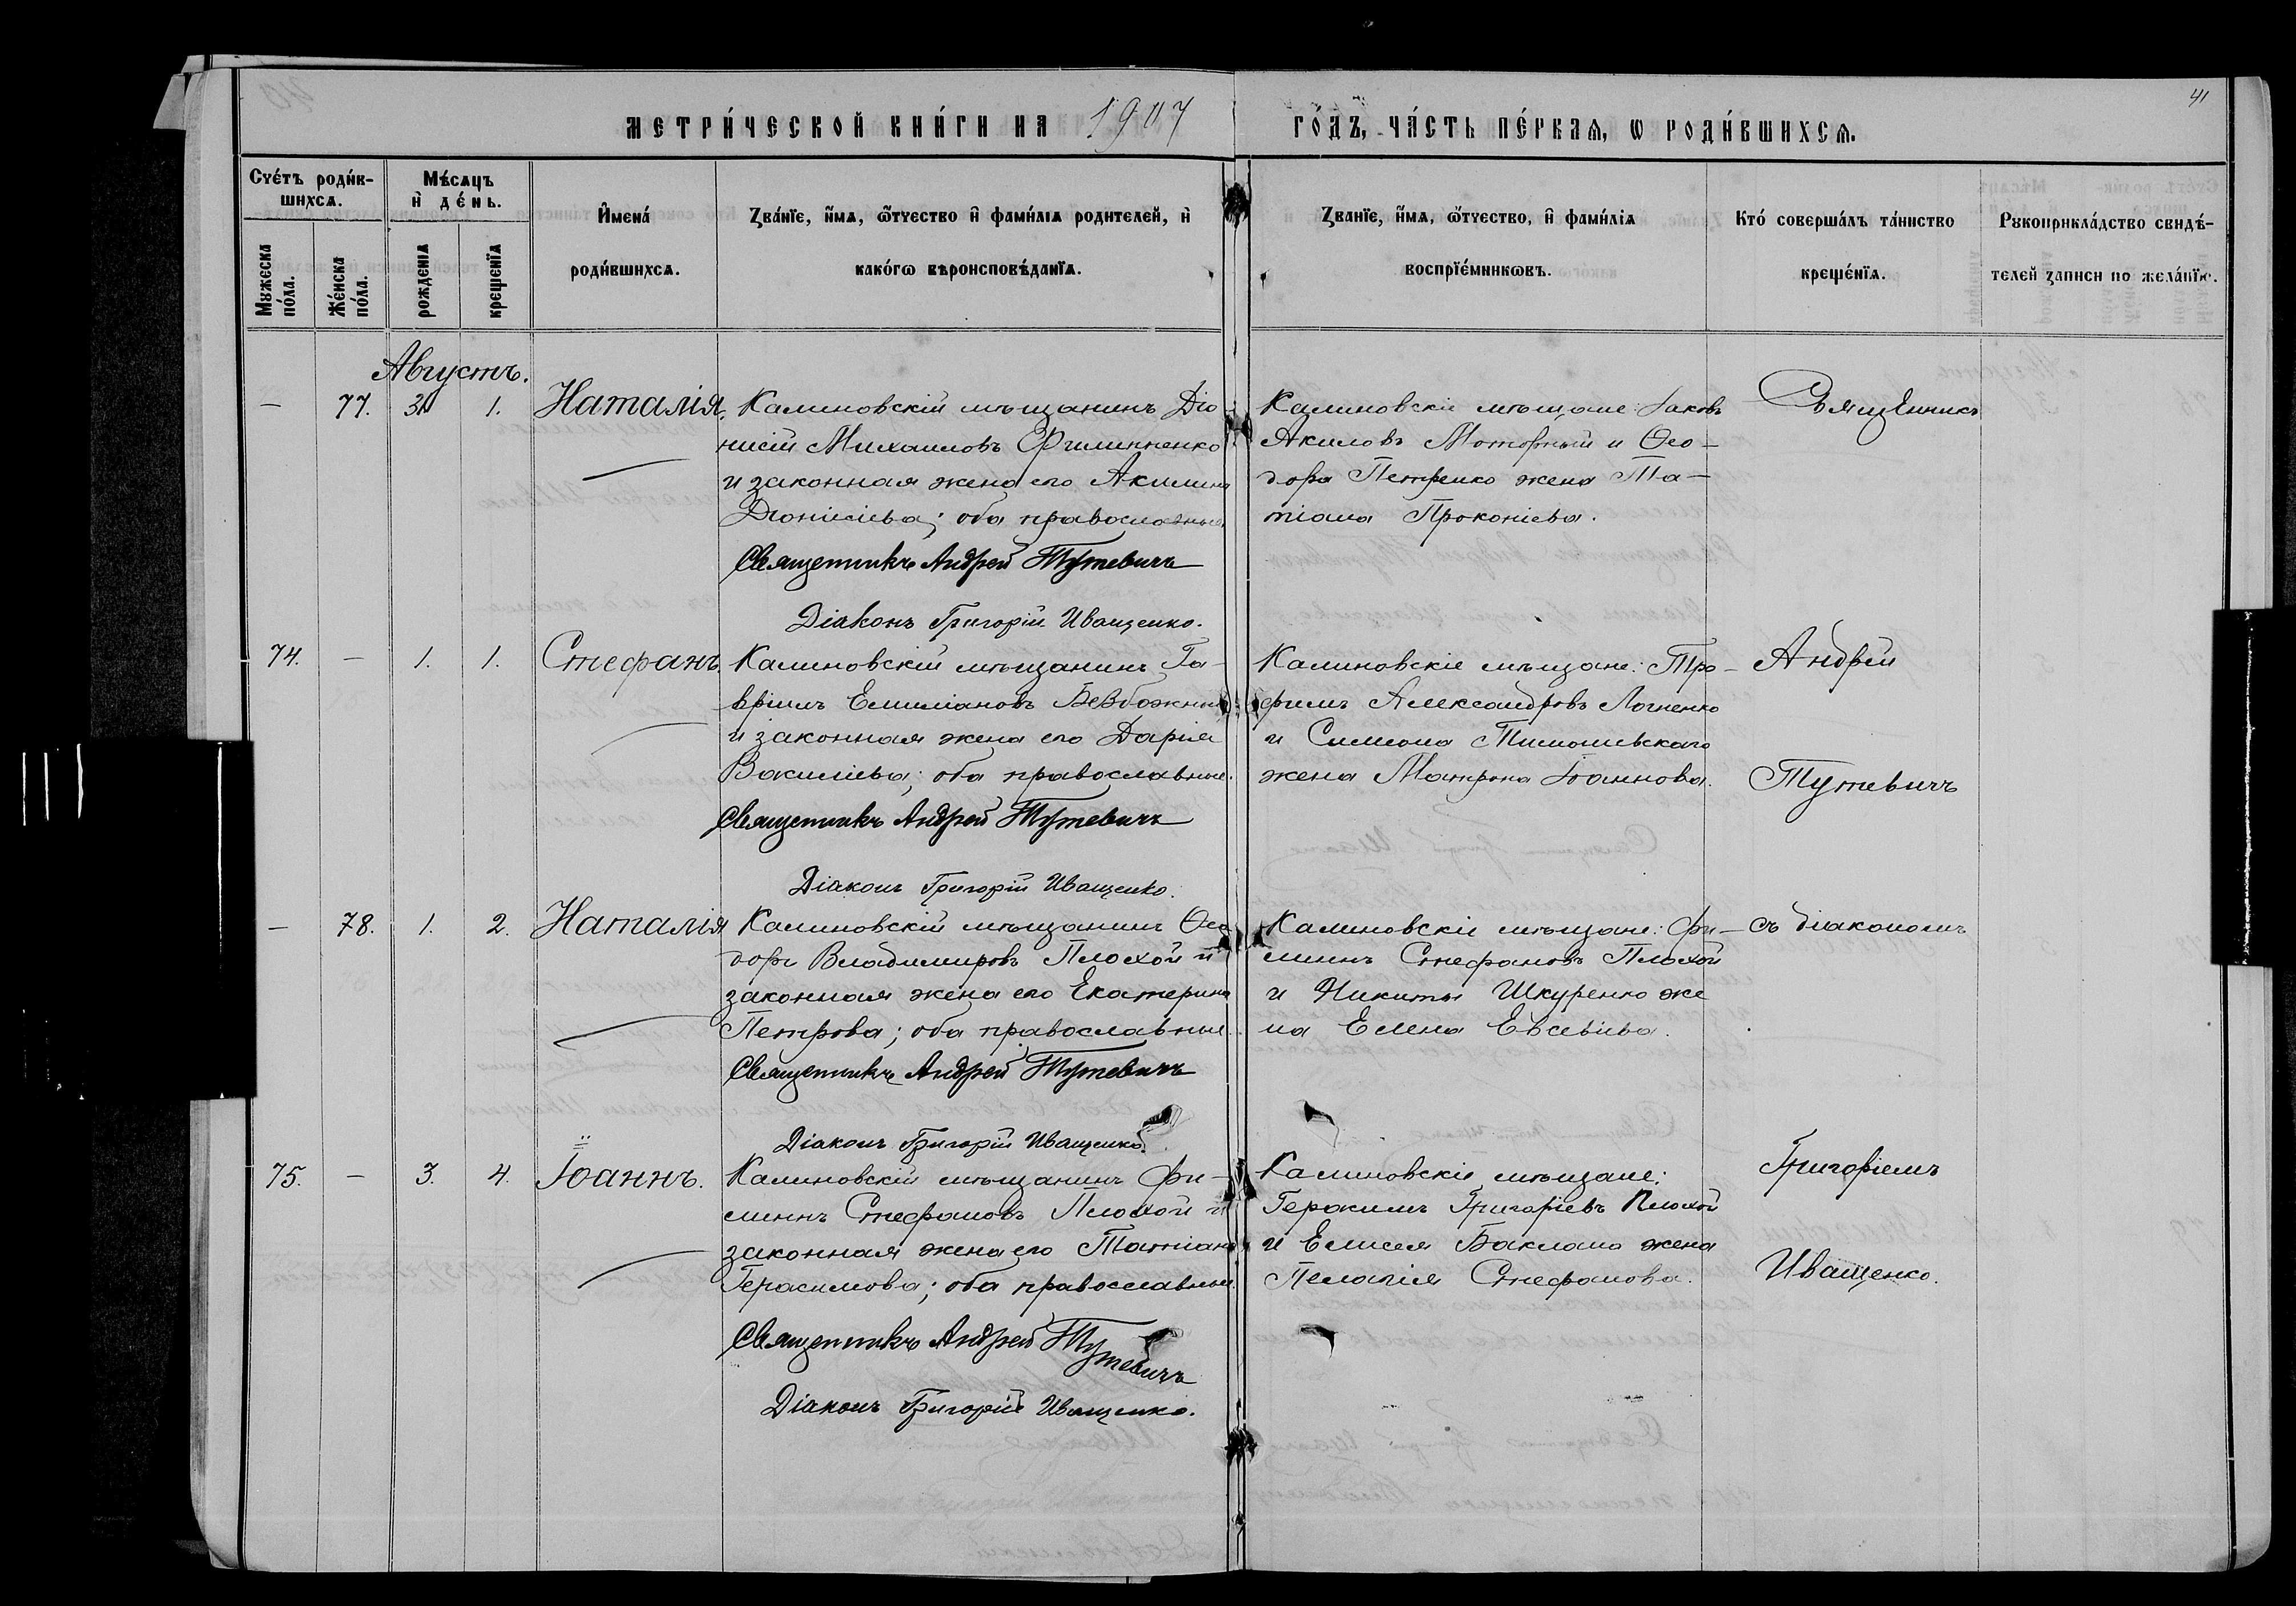 МЕТРИ́ЧЕСКОЙ КНИ́ГИ НА 1907
ГО́ДЪ, ЧА́СТЬ ПЕ́РВАЯ, Ѡ РОДИ́ВШИХСЯ.
41
Сче́тъ роди́в-
шихся.
Мѣ́сяцъ
и де́нь.
Мужеска
по́ла.
Же́нска
по́ла.
рожденія
крещенїя
И҆мена́
роди́вшихся.
Зва́нїе, и҆́мя, ѻ҆́тчество и҆ фами́лїя родителей, и҆
како́гѡ вѣроисповѣ́данїя.
Званїе, и҆́мя, ѻ҆́тчество, и҆ фами́лїя
воспрїе́мникѡвъ.
Кто́ соверша́лъ та́инство
креще́нїя.
Рукоприкла́дство свидѣ́-
телей записи по жела́нїю.
Августъ.
— 77. 31 1. Наталія.
Калиновскій мѣщанинъ Діо-
нисій Михаиловъ Филипненко
и законная жена его Акилина
Діонисіева; оба православные
Священникъ Андрей Тутевичъ
Діаконъ Григорій Иващенко.
Калиновскіе мѣщане: Іаковъ
Акиловъ Моторный и Ѳео-
дора Петренко жена Та-
тіана Прокопіева.
Священникъ
74. — 1. 1. Стефанъ.
Калиновскій мѣщанинъ Га-
вріилъ Емиліановъ Безбожный
и законная жена его Дарія
Василіева; оба православные.
Священникъ Андрей Тутевичъ
Діаконъ Григорій Иващенко.
Калиновскіе мѣщане: Тро-
фимъ Александровъ
и Симеона Тимошевскаго
жена Матрона Іоаннова.
Андрей
Тутевичъ
— 78. 1. 2. Наталія
Калиновскій мѣщанинъ Ѳео-
доръ Владимировъ Плохой и
законная жена его Екатерина
Петрова; оба православные.
Священникъ Андрей Тутевичъ
Діаконъ Григорій Иващенко.
Калиновскіе мѣщане: Фи-
липпъ Стефановъ Плохой
и Никиты Шкуренко же
на Елена Евсевіева.
съ діакономъ
75. — 3. 4. Іоаннъ.
Калиновскій мѣщанинъ Фи-
липпъ Стефановъ Плохой и
законная жена его Татіана
Герасимова; оба православные.
Священникъ Андрей Тутевичъ
Діаконъ Григорій Иващенко.
Калиновскіе мѣщане:
Герасимъ Григоріевъ Плохой
и Елисея Баклана жена
Пелагія Стефанова.
Григоріемъ
Иващенко.